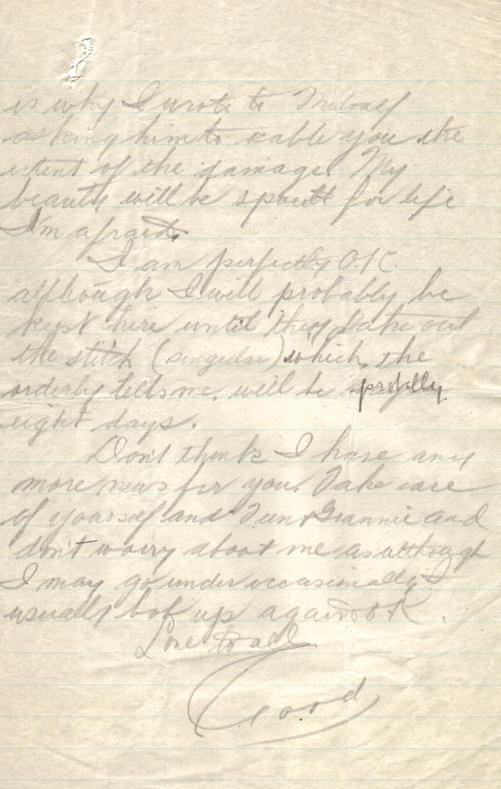 is why I wrote to Metcalf
asking him to cable you the
extent of the damage. My
beauty will be spoilt for life
I'm afraid.
I am perfectly O.K.
although I will probably be
kept here until they take out
the stitch (singular) which, the
orderly tells me, will be probably
eight days.
Don't think I have any
more news for you. Take care
of yourself and and
don't worry about me as although
I may go under occasionally I
usually bob up again O.K.
Love to all